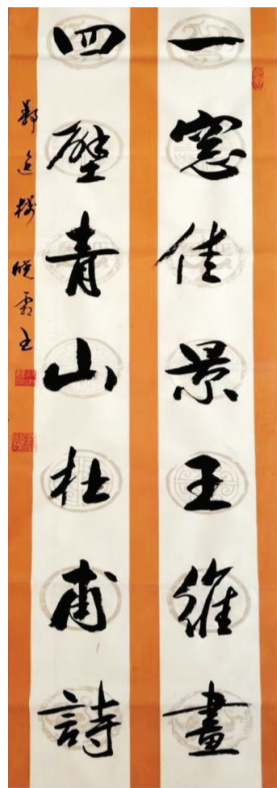 一窓佳景王維畫
四壁青山杜甫詩